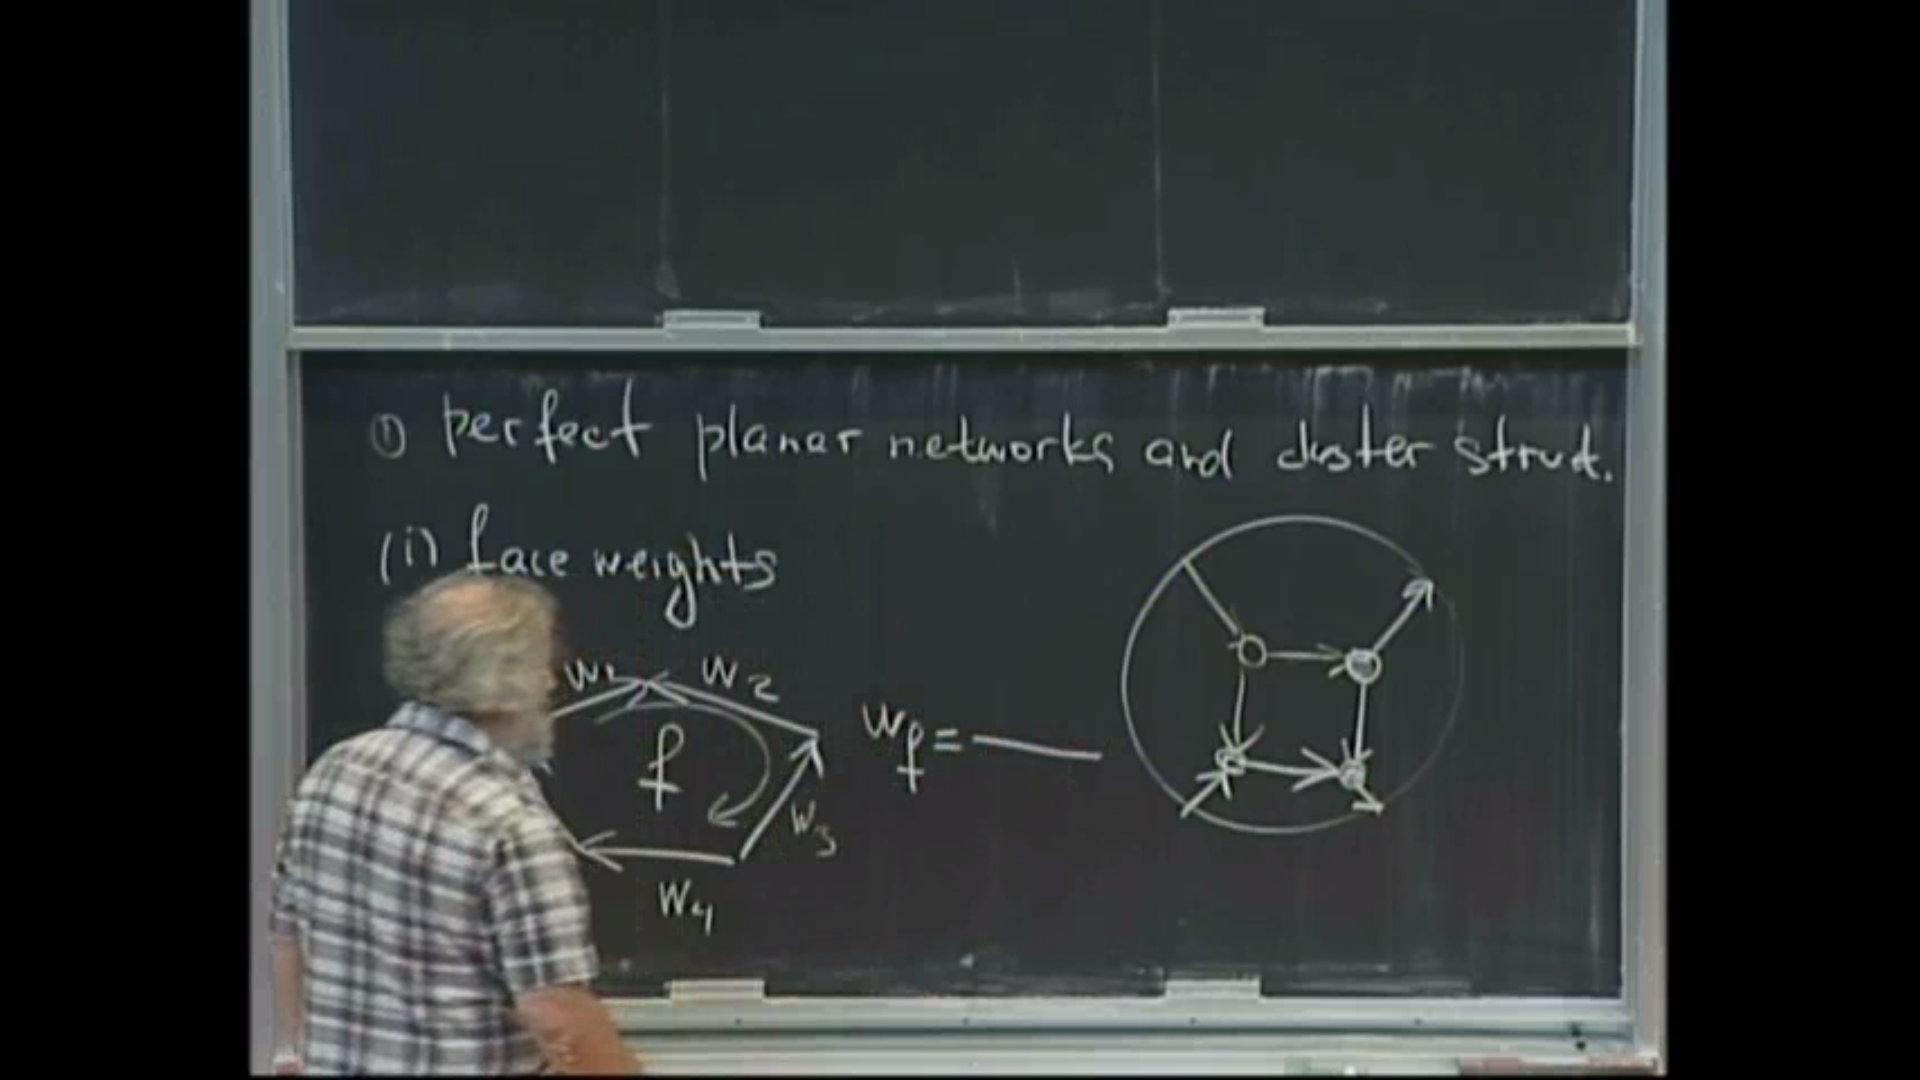 1) perfect planar networks and cluster struct.
(i) face weights
w1 w2
f
w3
w4
wf = —